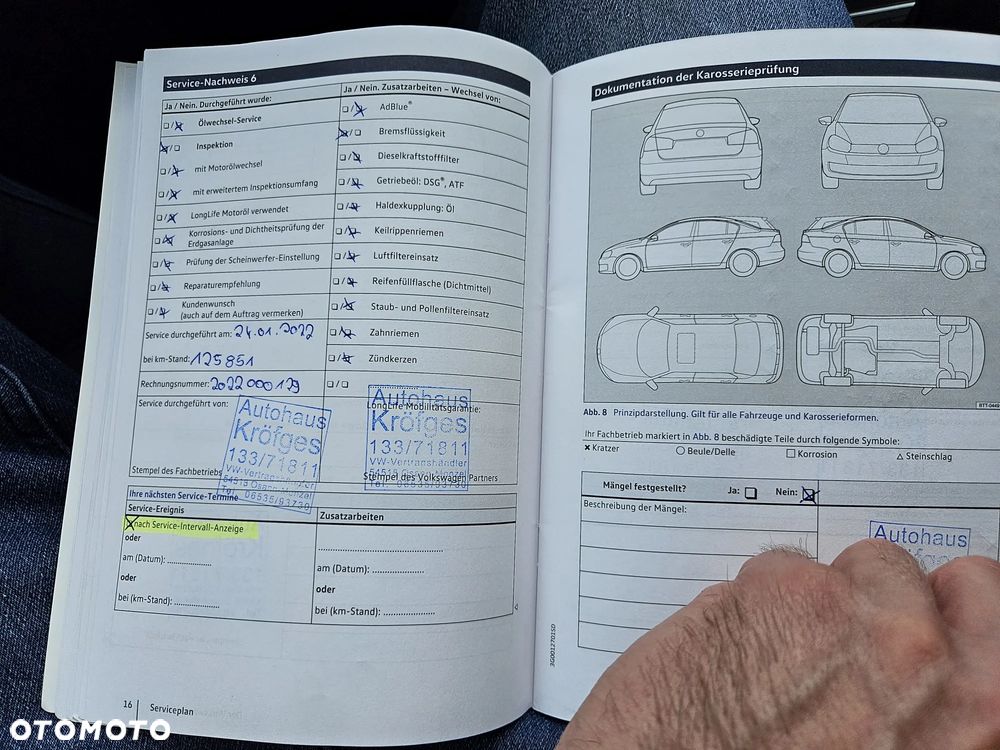 Service-Nachweis 6
Ja / Nein. Durchgeführt wurde:
Ölwechsel-Service
Inspektion
mit Motorölwechsel
mit erweitertem Inspektionsumfang
LongLife Motoröl verwendet
Korrosions- und Dichtheitsprüfung der
Erdgasanlage
Prüfung der Scheinwerfer-Einstellung
Reparaturempfehlung
Kundenwunsch
(auch auf dem Auftrag vermerken)
Service durchgeführt am: 24.01.2022
bei km-Stand: 125851
Rechnungsnummer: 2022000129
Service durchgeführt von:
Autohaus
Kröfges
133/71811
VW-Vertragshändler
54518 Osann-Monzel
Tel. 06535/93730
Stempel des Fachbetriebs
Ja / Nein. Zusatzarbeiten – Wechsel von:
AdBlue®
Bremsflüssigkeit
Dieselkraftstofffilter
Getriebeöl: DSG®, ATF
Haldexkupplung: Öl
Keilrippenriemen
Luftfiltereinsatz
Reifenfüllflasche (Dichtmittel)
Staub- und Pollenfiltereinsatz
Zahnriemen
Zündkerzen
LongLife Mobilitätsgarantie:
Autohaus
Kröfges
133/71811
VW-Vertragshändler
54518 Osann-Monzel
Tel. 06535/93730
Stempel des Volkswagen Partners
Ihre nächsten Service-Termine
Service-Ereignis
nach Service-Intervall-Anzeige
oder
am (Datum): ....................
oder
bei (km-Stand): ....................
Zusatzarbeiten
am (Datum): ....................
oder
bei (km-Stand): ....................
16 Serviceplan
Dokumentation der Karosserieprüfung
BTT-0449
Abb. 8 Prinzipdarstellung. Gilt für alle Fahrzeuge und Karosserieformen.
Ihr Fachbetrieb markiert in Abb. 8 beschädigte Teile durch folgende Symbole:
× Kratzer ○ Beule/Delle □ Korrosion △ Steinschlag
Mängel festgestellt? Ja: Nein:
Beschreibung der Mängel:
Autohaus
3G0012701SD
OTOMOTO